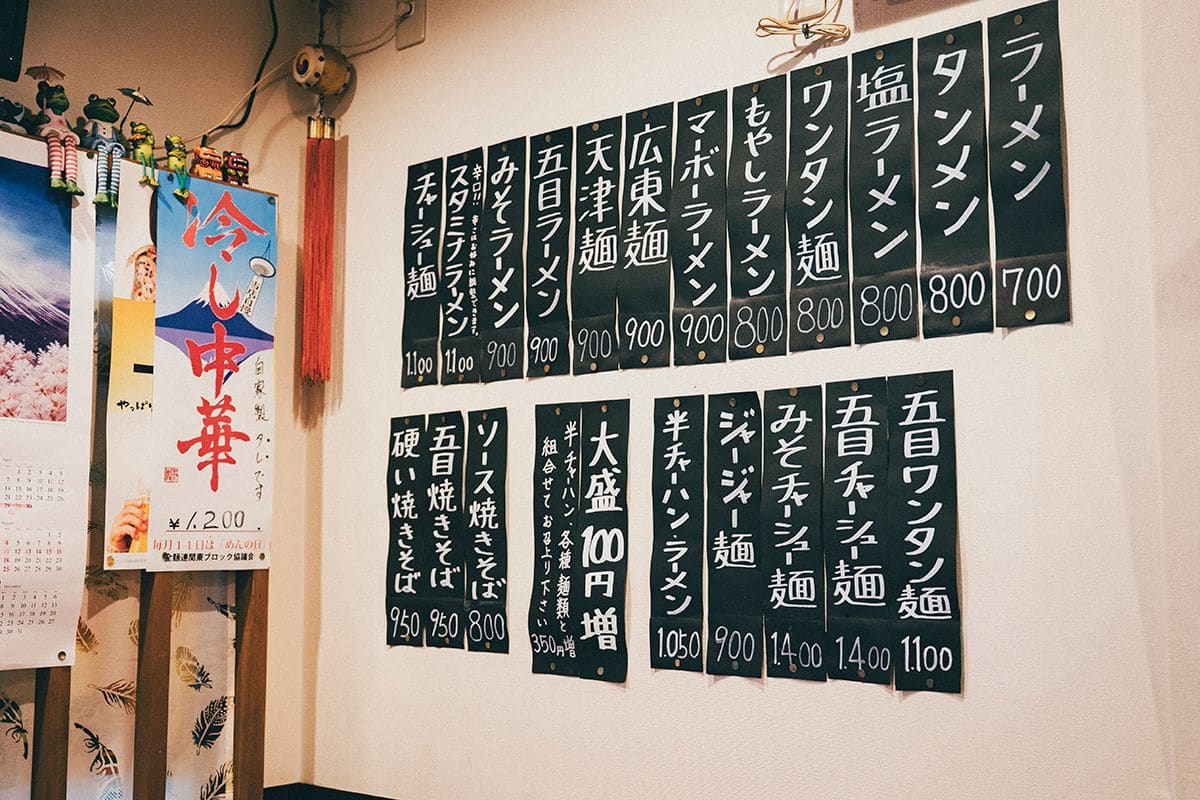 ラーメン
700
タンメン
800
塩ラーメン
800
ワンタン麺
800
もやしラーメン
800
マーボーラーメン
900
広東麺
900
天津麺
900
五目ラーメン
900
みそラーメン
900
スタミナラーメン
1.100
チャーシュー麺
1.100
五目ワンタン麺
1.100
五目チャーシュー麺
1.400
みそチャーシュー麺
1.400
ジャージャー麺
900
半チャーハン・ラーメン
1.050
大盛100円増
半チャーハン、各種麺類と
組合せてお召上り下さい
350円増
ソース焼きそば
800
五目焼きそば
950
硬い焼きそば
950
冷し中華
自家製タレです
¥1.200.
毎月11日は「めんの日」
全麺連関東ブロック協議会
やっぱり